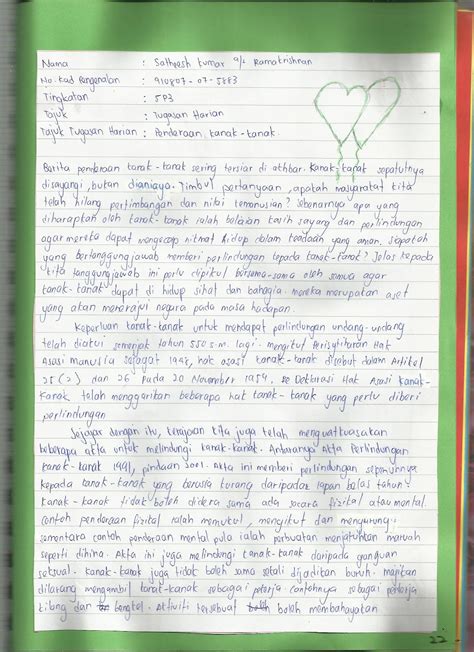 Nama : Satheesh kumar a/L Ramakrishnan
No. Kad Pengenalan : 910807-07-5883
Tingkatan : 5P3
Tajuk : Tugasan Harian
Tajuk Tugasan Harian : Penderaan kanak-kanak.
Berita pembroan kanak-kanak sering tersiar di akhbar. Kanak-kanak sepatutnya
disayangi, bukan dianiaya. Timbul pertanyaan, apakah masyarakat kita
telah hilang pertimbangan dan nilai kemanusian? Sebenarnya apa yang
diharapkan oleh kanak-kanak ialah belaian kasih sayang dan perlindungan
agar mereka dapat mengecap nikmat hidup dalam keadaan yang aman. Siapakah
yang bertanggungjawab memberi perlindungan kepada kanak-kanak? Jelas kepada
kita tanggungjawab ini perlu dipikul bersama-sama oleh semua agar
kanak-kanak dapat di hidup sihat dan bahagia. mereka merupakan aset
yang akan menerajui negara pada masa hadapan.
Keperluan kanak-kanak untuk mendapat perlindungan undang-undang
telah diakui semenjak tahun 550 s.m. lagi. mengikut Perisytiharan Hak
Asasi manusia sejagat 1948, hak asasi kanak-kanak disebut dalam Artikel
25 (2) dan 26 Pada 20 November 1959. se Deklarasi Hak Asasi Kanak-
Kanak telah menggariskan beberapa hak kanak-kanak yang perlu diberi
perlindungan
Sejajar dengan itu, kerajaan kita juga telah menguatkuasakan
beberapa akta untuk melindungi kanak-kanak. Antaranya Akta Perlindungan
kanak-kanak 1991, pindaan 2001. Akta ini memberi perlindungan sepenuhnya
kepada kanak-kanak yang berusia kurang daripada lapan belas tahun
Kanak-kanak tidak boleh didera sama ada secara fizikal atau mental.
contoh penderaan fizikal ialah memukul, mengikut dan mengurung
sementara contoh penderaan mental pula ialah perbuatan menjatuhkan maruah
seperti dihina. Akta ini juga melindungi kanak-kanak daripada gangguan
seksual. Kanak-kanak juga tidak boleh sama sekali dijadikan buruh. majikan
dilarang mengambil kanak-kanak sebagai pekerja contohnya sebagai pekerja
kilang dan bengkel. Aktiviti tersebut boleh membahayakan
22